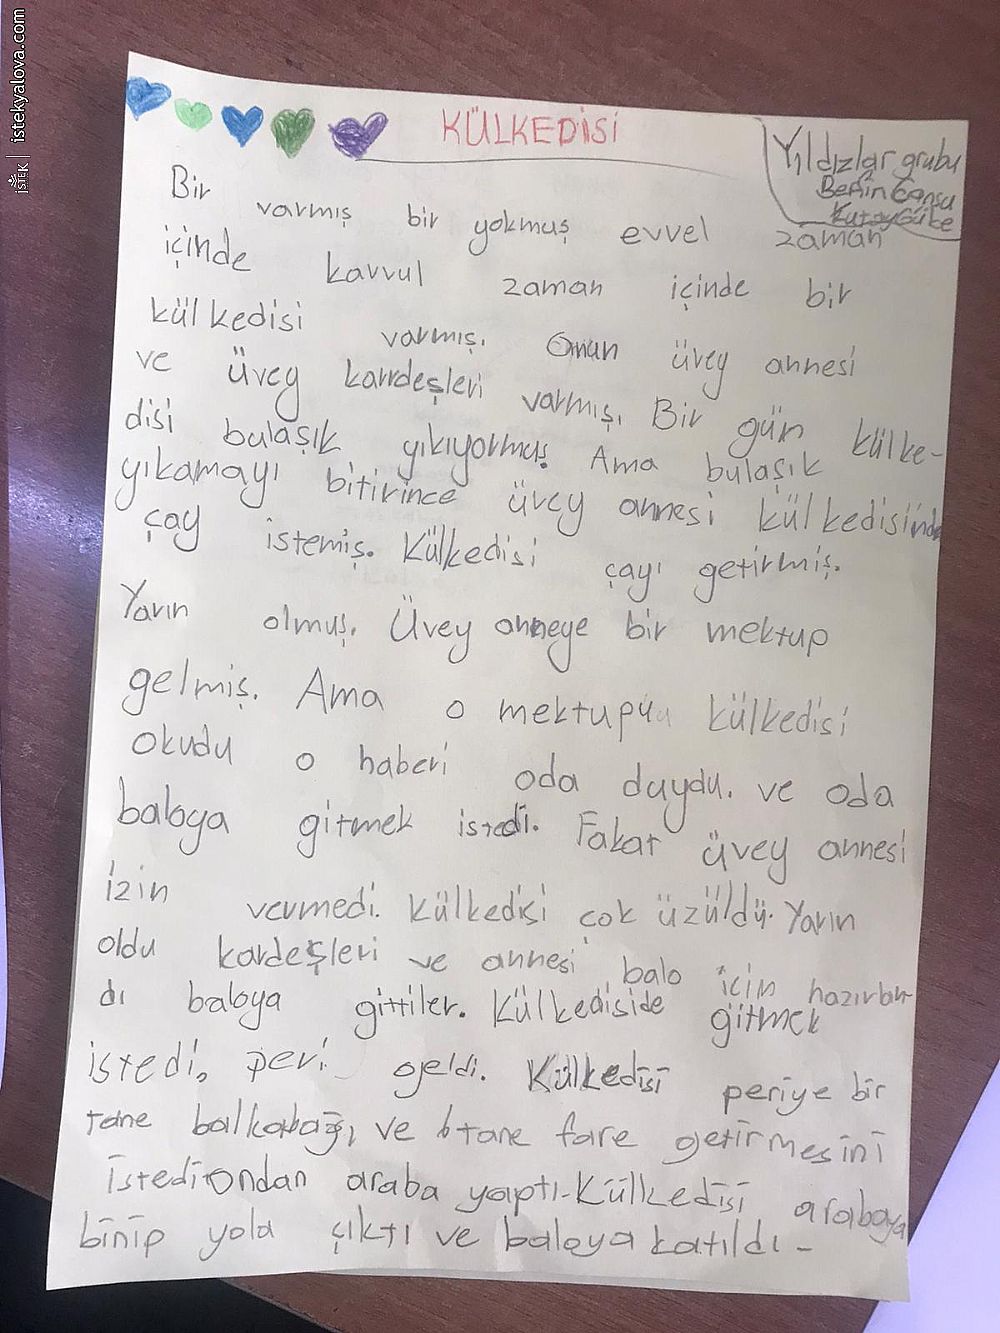 İSTEK | istekyalova.com
KÜLKEDİSİ
Yıldızlar grubu
Cansu
Bir varmış bir yokmuş evvel zaman
içinde kavvul zaman içinde bir
külkedisi varmış. Onun üvey annesi
ve üvey karrdeşleri varmış. Bir gün külke-
disi bulaşık yıkıyormuş. Ama bulaşık
yıkamayı bitirince üvey annesi külkedisinde
çay istemiş. Külkedisi çayı getirmiş.
Yarın olmuş. Üvey anneye bir mektup
gelmiş. Ama o mektupu külkedisi
okudu o haberi oda duydu. ve oda
baloya gitmek istedi. Fakat üvey annesi
izin vermedi. Külkedisi çok üzüldü. Yarın
oldu kardeşleri ve annesi balo için hazırlan-
dı baloya gittiler. Külkediside gitmek
istedi, peri geldi. Külkedisi periye bir
tane balkabağı ve 6 tane fare getirmesini
istedi ondan araba yaptı-Külkedisi arabaya
binip yola çıktı ve baloya katıldı-